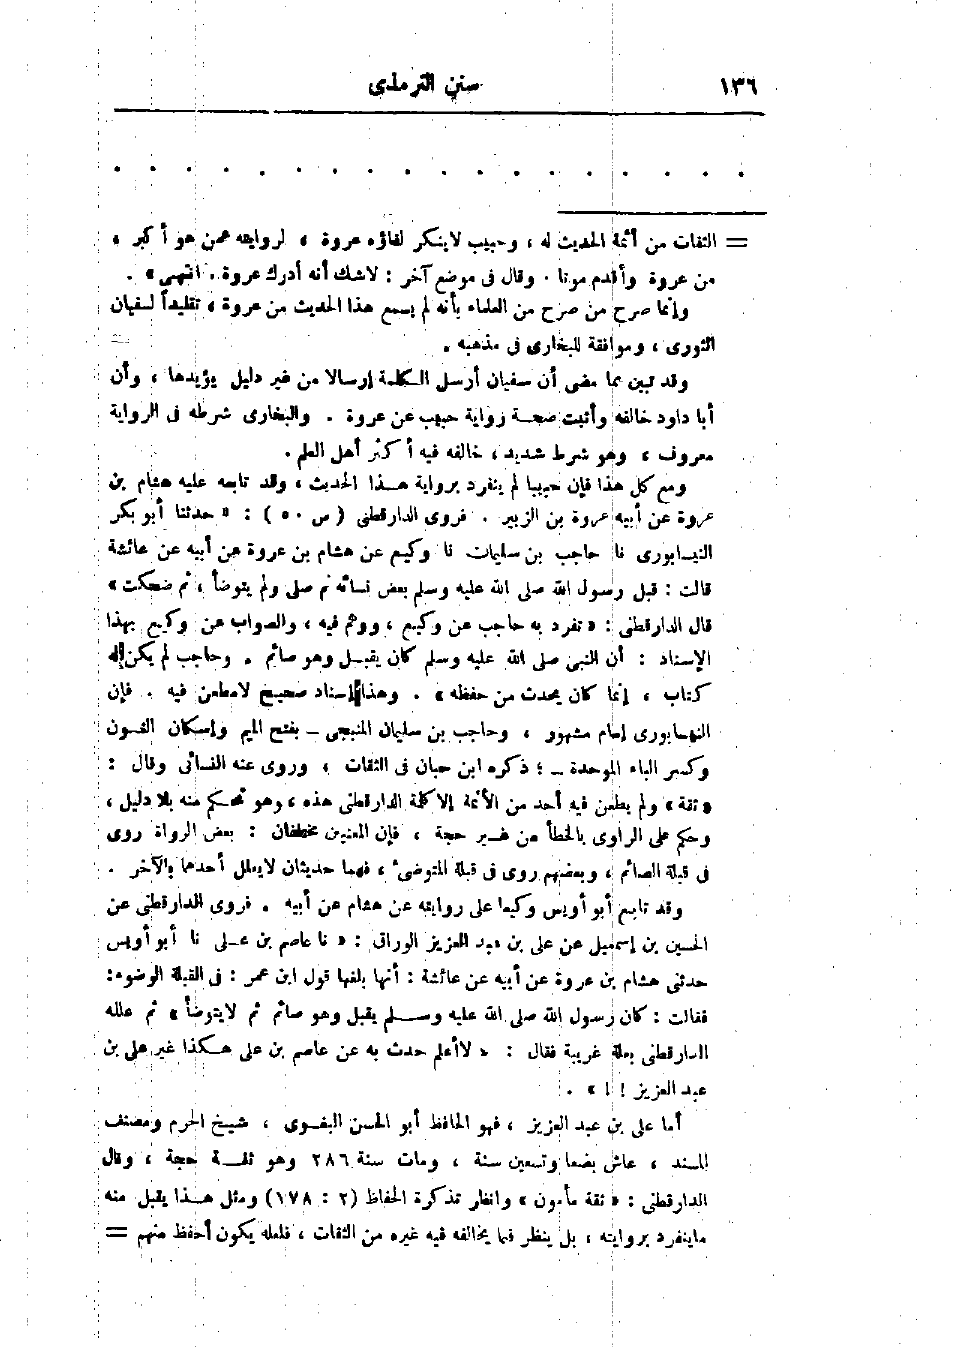 ١٣٦ سنن الترمذى
= الثقات من أئمة الحديث له ، وحبيب لاينكر لقاؤه عروة ، لروايته عمن هو أكبر ،
من عروة وأقدم موتا . وقال فى موضع آخر : لاشك أنه أدرك عروة . انتهى » .
وإنما صرح من صرح من العلماء بأنه لم يسمع هذا الحديث من عروة ، تقليداً لسفيان
الثورى ، وموافقة للبخارى فى مذهبه .
وقد تبين مما مضى أن سفيان أرسل الكلمة إرسالا من غير دليل يؤيدها ، وأن
أبا داود خالفه وأثبت صحة رواية حبيب عن عروة . والبخارى شرطه فى الرواية
معروف ، وهو شرط شديد ، خالفه فيه أكثر أهل العلم .
ومع كل هذا فإن حبيبا لم ينفرد برواية هذا الحديث ، وقد تابعه عليه هشام بن
عروة عن أبيه عروة بن الزبير . فروى الدارقطنى ( ص ٥٠ ) : « حدثنا أبو بكر
النيسابورى نا حاجب بن سليمان نا وكيع عن هشام بن عروة عن أبيه عن عائشة
قالت : قبل رسول الله صلى الله عليه وسلم بعض نسائه ثم صلى ولم يتوضأ ، ثم ضحكت »
قال الدارقطنى : « تفرد به حاجب عن وكيع ، ووهم فيه ، والصواب عن وكيع بهذا
الإسناد : أن النبى صلى الله عليه وسلم كان يقبل وهو صائم . وحاجب لم يكن له
كتاب ، إنما كان يحدث من حفظه » . وهذا إسناد صحيح لامطعن فيه . فإن
النيسابورى إمام مشهور ، وحاجب بن سليمان المنبجى ــ بفتح الميم وإسكان النون
وكسر الباء الموحدة ــ ؛ ذكره ابن حبان فى الثقات ، وروى عنه النسائى وقال :
« ثقة » ولم يطعن فيه أحد من الأئمة إلا كلمة الدارقطنى هذه ، وهو تحكم منه بلا دليل ،
وحكم على الراوى بالخطأ من غير حجة ، فإن المعنيين مختلفان : بعض الرواة روى
فى قبلة الصائم ، وبعضهم روى فى قبلة المتوضئ ، فهما حديثان لايعلل أحدهما بالآخر .
وقد تابع أبو أويس وكيعا على روايته عن هشام عن أبيه . فروى الدارقطنى عن
الحسين بن إسمعيل عن على بن عبد العزيز الوراق : « نا عاصم بن على نا أبو أويس
حدثنى هشام بن عروة عن أبيه عن عائشة : أنها بلغها قول ابن عمر : فى القبلة الوضوء :
فقالت : كان رسول الله صلى الله عليه وسلم يقبل وهو صائم ثم لايتوضأ » ثم علله
الدارقطنى بعلة غريبة فقال : « لاأعلم حدث به عن عاصم بن على هكذا غير على بن
عبد العزيز ! ! » .
أما على بن عبد العزيز ، فهو الحافظ أبو الحسن البغوى ، شيخ الحرم ومصنف
المسند ، عاش بضعا وتسعين سنة ، ومات سنة ٢٨٦ وهو ثقة حجة ، وقال
الدارقطنى : « ثقة مأمون » وانظر تذكرة الحفاظ (٢ : ١٧٨) ومثل هذا يقبل منه
ماينفرد بروايته ، بل ينظر فيما يخالفه فيه غيره من الثقات ، فلعله يكون أحفظ منهم =